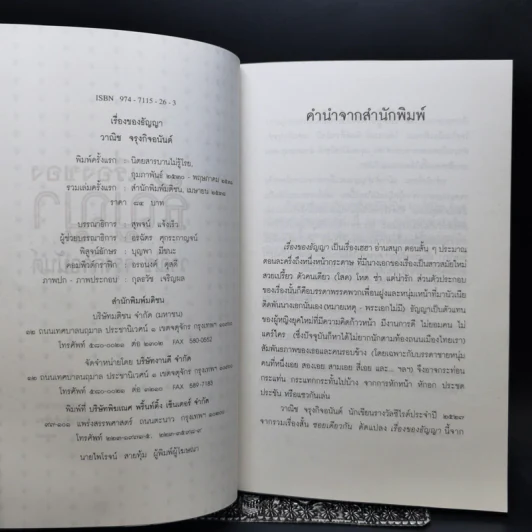 ISBN 974 - 7115 - 26 - 3
เรื่องของธัญญา
วาณิช จรุงกิจอนันต์
พิมพ์ครั้งแรก นิตยสารบานไม่รู้โรย,
กุมภาพันธ์ ๒๕๓๐ - พฤษภาคม
รวมเล่มครั้งแรก สำนักพิมพ์มติชน, เมษายน
ราคา ๘๕ บาท
บรรณาธิการ สุพจน์ แจ้งเร็ว
ผู้ช่วยบรรณาธิการ อรฉัตร ศุกระกาญจน์
พิสูจน์อักษร บุญพา มีชนะ
คอมพิวต์กราฟิก อรอนงค์ ดุสดี
ภาพปก - ภาพประกอบ กุลธวัช เจริญผล
สำนักพิมพ์มติชน
บริษัทมติชน จำกัด (มหาชน)
๑๒ ถนนเทศบาลนฤมาล ประชานิเวศน์ ๑ เขตจตุจักร กรุงเทพฯ
โทรศัพท์ ต่อ FAX 580-0652
จัดจำหน่ายโดย บริษัทงานดี จำกัด
๑๒ ถนนเทศบาลนฤมาล ประชานิเวศน์ ๑ เขตจตุจักร กรุงเทพฯ
โทรศัพท์ ต่อ FAX 589-7183
พิมพ์ที่ บริษัทพิฆเณศ พริ้นท์ติ้ง เซ็นเตอร์ จำกัด
แพร่งสรรพศาสตร์ ถนนตะนาว กรุงเทพฯ
โทรศัพท์
นายไพโรจน์ สายทุ้ม ผู้พิมพ์ผู้โฆษณา
คำนำจากสำนักพิมพ์
เรื่องของธัญญา เป็นเรื่องเฮฮา อ่านสนุก ตอนสั้น ๆ ประมาณ
ตอนละครึ่งถึงหนึ่งหน้ากระดาษ ที่มีนางเอกของเรื่องเป็นสาวสมัยใหม่
สวยเปรี้ยว ตัวคนเดียว (โสด) โหด ซ่า แต่น่ารัก ส่วนตัวประกอบ
ของเรื่องนั้นก็คือบรรดาพรรคพวกเพื่อนฝูงและหนุ่มหน้าที่มานัวเนีย
ติดพันนางเอกนั่นเอง (หมายเหตุ - พระเอกไม่มี) ธัญญาเป็นตัวแทน
ของผู้หญิงยุคใหม่ที่มีความคิดก้าวหน้า มีงานการดี ไม่ยอมคน ไม่
แคร์ใคร (ซึ่งปัจจุบันก็หาได้ไม่ยากนักตามท้องถนนเมืองไทยเรา)
สัมพันธภาพของเธอและคนรอบข้าง (โดยเฉพาะกับบรรดาชายหนุ่ม
คนที่หนึ่งเอย สองเอย สามเอย สี่เอย และ... ฯลฯ) จึงอาจกระท่อน
กระแท่น กระแทกกระทั้นไปบ้าง จากการหักหน้า หักอก ประชด
ประชัน หรือแซวกันเล่น
วาณิช จรุงกิจอนันต์ นักเขียนรางวัลซีไรต์ประจำปี ๒๕๒๗
จากรวมเรื่องสั้น ซอยเดียวกัน ดัดแปลง เรื่องของธัญญา นี้จาก